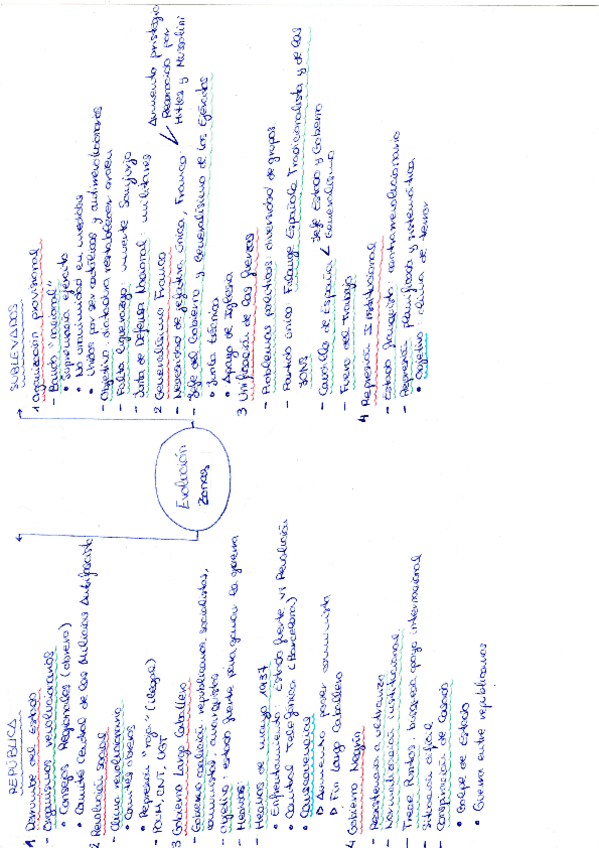 Evolución
zonas
REPÚBLICA
1 Derrumbe del estado
- Organismos revolucionarios
• Consejos Regionales (obrero)
• Comité Central de las Milicias Antifascistas
2 Revolución social
- Clima revolucionario
• Comités obreros
- Represión "roja" (ilegal)
- POUM, CNT, UGT
3 Gobierno Largo Caballero
- Gobierno coalición: republicanos, socialistas,
comunistas, anarquistas
- Objetivo: estado fuerte para ganar la guerra
- Hechos de mayo 1937
• Enfrentamiento: Estado fuerte vs Revolución
• Central Telefónica (Barcelona)
• Consecuencias
▷ Aumento poder comunista
▷ Fin Largo Caballero
4 Gobierno Negrín
- Resistencia a ultranza
- Normalización institucional
- Trece Puntos: búsqueda apoyo internacional
- Situación difícil
- Conspiración de Casado
• Golpe de Estado
• Guerra entre republicanos
SUBLEVADOS
1 Organización provisional
- Bando "nacional"
• Supremacía ejército
• No unanimidad en medidas
• Unidos por ser católicos y antirrevolucionarios
- Objetivo: dictadura restablecer orden
- Falta liderazgo: muerte Sanjurjo
- Junta de Defensa Nacional: militares
2 Generalísimo Franco
- Necesidad de jefatura única, Franco
Aumento prestigio
Reconocido por
Hitler y Mussolini
- Jefe del Gobierno y Generalísimo de los Ejércitos
• Junta técnica
• Apoyo de Iglesia
3 Unificación de las fuerzas
- Problemas políticos: diversidad de grupos
- Partido único Falange Española Tradicionalista y de las
JONS
- Caudillo de España
Jefe Estado y Gobierno
Generalísimo
- Fuero del Trabajo
4 Represión Institucional
- Estado franquista contrarrevolucionario
- Represión planificada y sistemática
• Objetivo: clima de terror